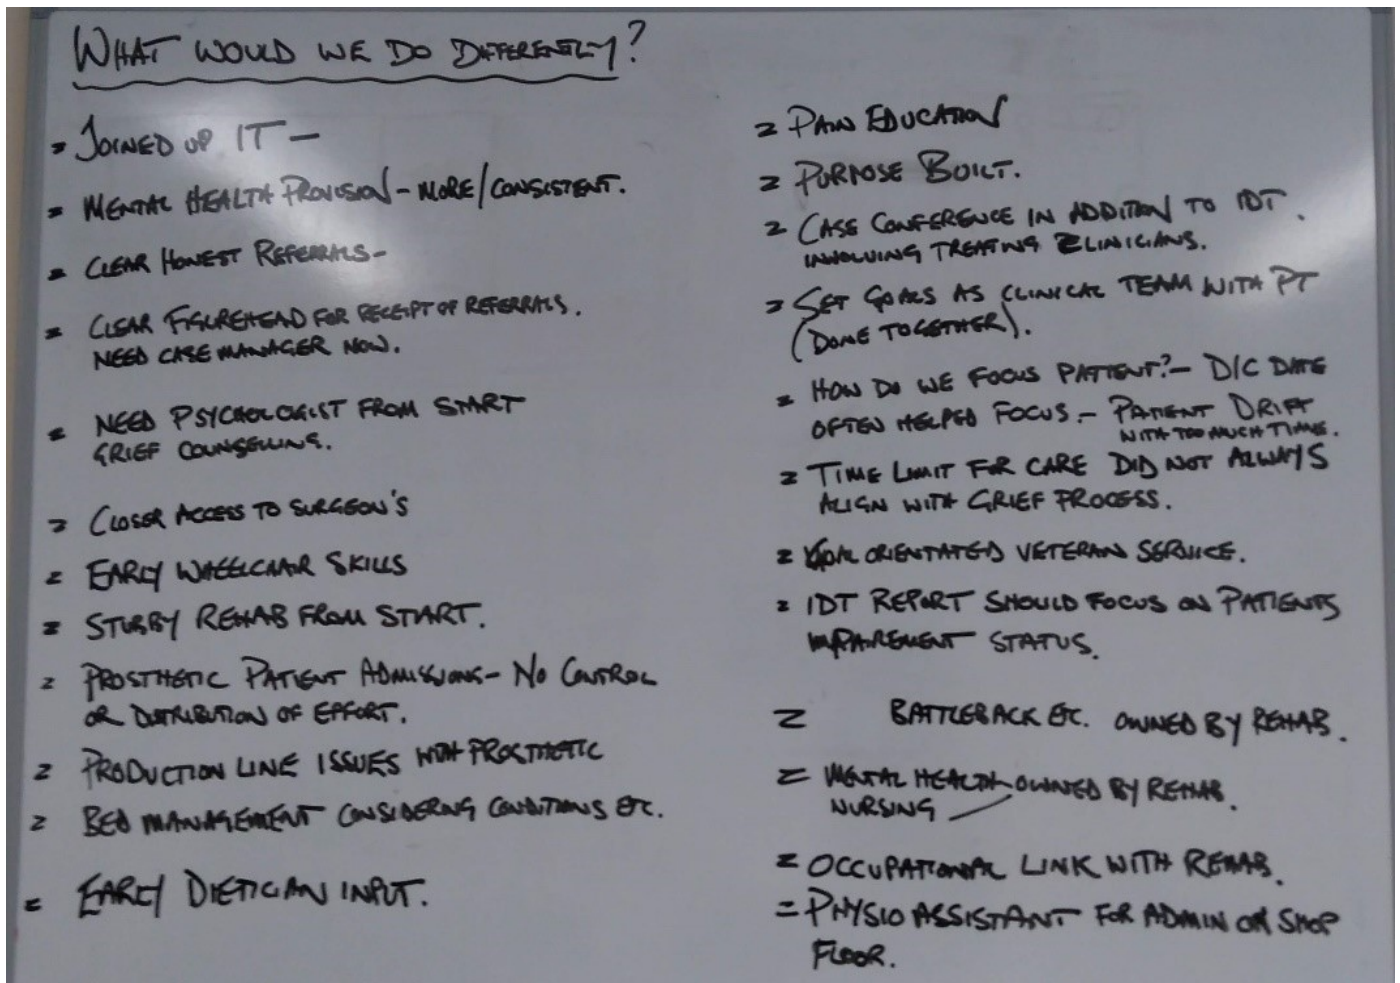 WHAT WOULD WE DO DIFFERENTLY?
= JOINED UP IT –
= MENTAL HEALTH PROVISION – MORE/CONSISTENT.
= CLEAR HONEST REFERRALS –
= CLEAR FIGUREHEAD FOR RECEIPT OF REFERRALS.
NEED CASE MANAGER NOW.
= NEED PSYCHOLOGIST FROM START
GRIEF COUNSELLING.
= CLOSER ACCESS TO SURGEON'S
= EARLY WHEELCHAIR SKILLS
= STUBBY REHAB FROM START.
= PROSTHETIC PATIENT ADMISSIONS – NO CONTROL
OR DISTRIBUTION OF EFFORT.
= PRODUCTION LINE ISSUES WITH PROSTHETIC
= BED MANAGEMENT CONSIDERING CONDITIONS ETC.
= EARLY DIETICIAN INPUT.
= PAIN EDUCATION
= PURPOSE BUILT.
= CASE CONFERENCE IN ADDITION TO IDT.
INVOLVING TREATING CLINICIANS.
= SET GOALS AS CLINICAL TEAM WITH PT
(DONE TOGETHER).
= HOW DO WE FOCUS PATIENT? – D/C DATE
OFTEN HELPED FOCUS. – PATIENT DRIFT
WITH TOO MUCH TIME.
= TIME LIMIT FOR CARE DID NOT ALWAYS
ALIGN WITH GRIEF PROCESS.
= GOAL ORIENTATED VETERAN SERVICE.
= IDT REPORT SHOULD FOCUS ON PATIENTS
IMPAIREMENT STATUS.
= BATTLEBACK ETC. OWNED BY REHAB.
= MENTAL HEALTH – OWNED BY REHAB.
NURSING
= OCCUPATIONAL LINK WITH REHAB.
= PHYSIO ASSISTANT FOR ADMIN OR SHOP
FLOOR.